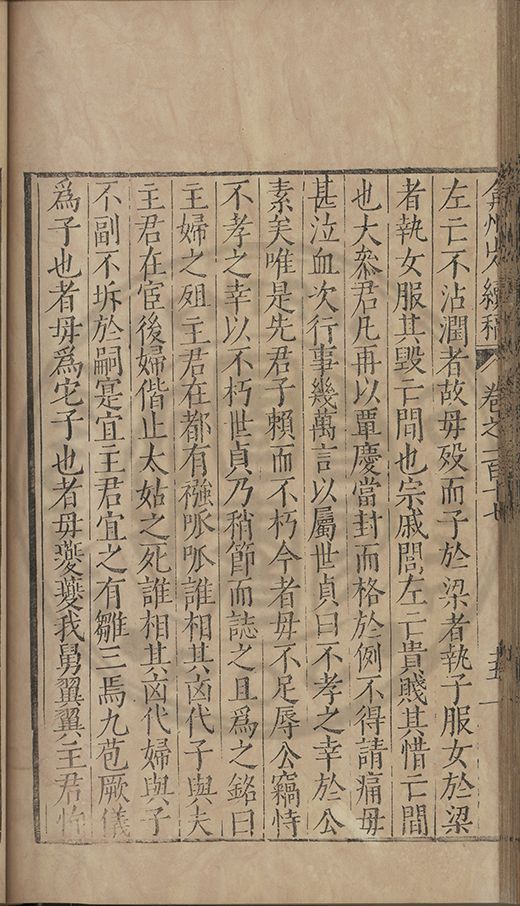 弇州山人續稿 卷之一百十七 十五
左亡不沾潤者故母歿而子於梁者執子服女於梁
者執女服其毀亡間也宗戚閭左亡貴賤其惜亡間
也大叅君凡再以覃慶當封而格於例不得請痛母
甚泣血次行事幾萬言以屬世貞曰不孝之幸於公
素矣唯是先君子賴而不朽今者母不足辱公竊恃
不孝之幸以不朽世貞乃稍節而誌之且為之銘曰
主婦之殂主君在都有襁呱呱誰相其凶代子與夫
主君在宦後婦偕止太姑之死誰相其凶代婦與子
不副不坼於嗣寔宜王君宜之有雛三焉九苞厥儀
為子也者母為宅子也者母夔夔我舅翼翼主君怡